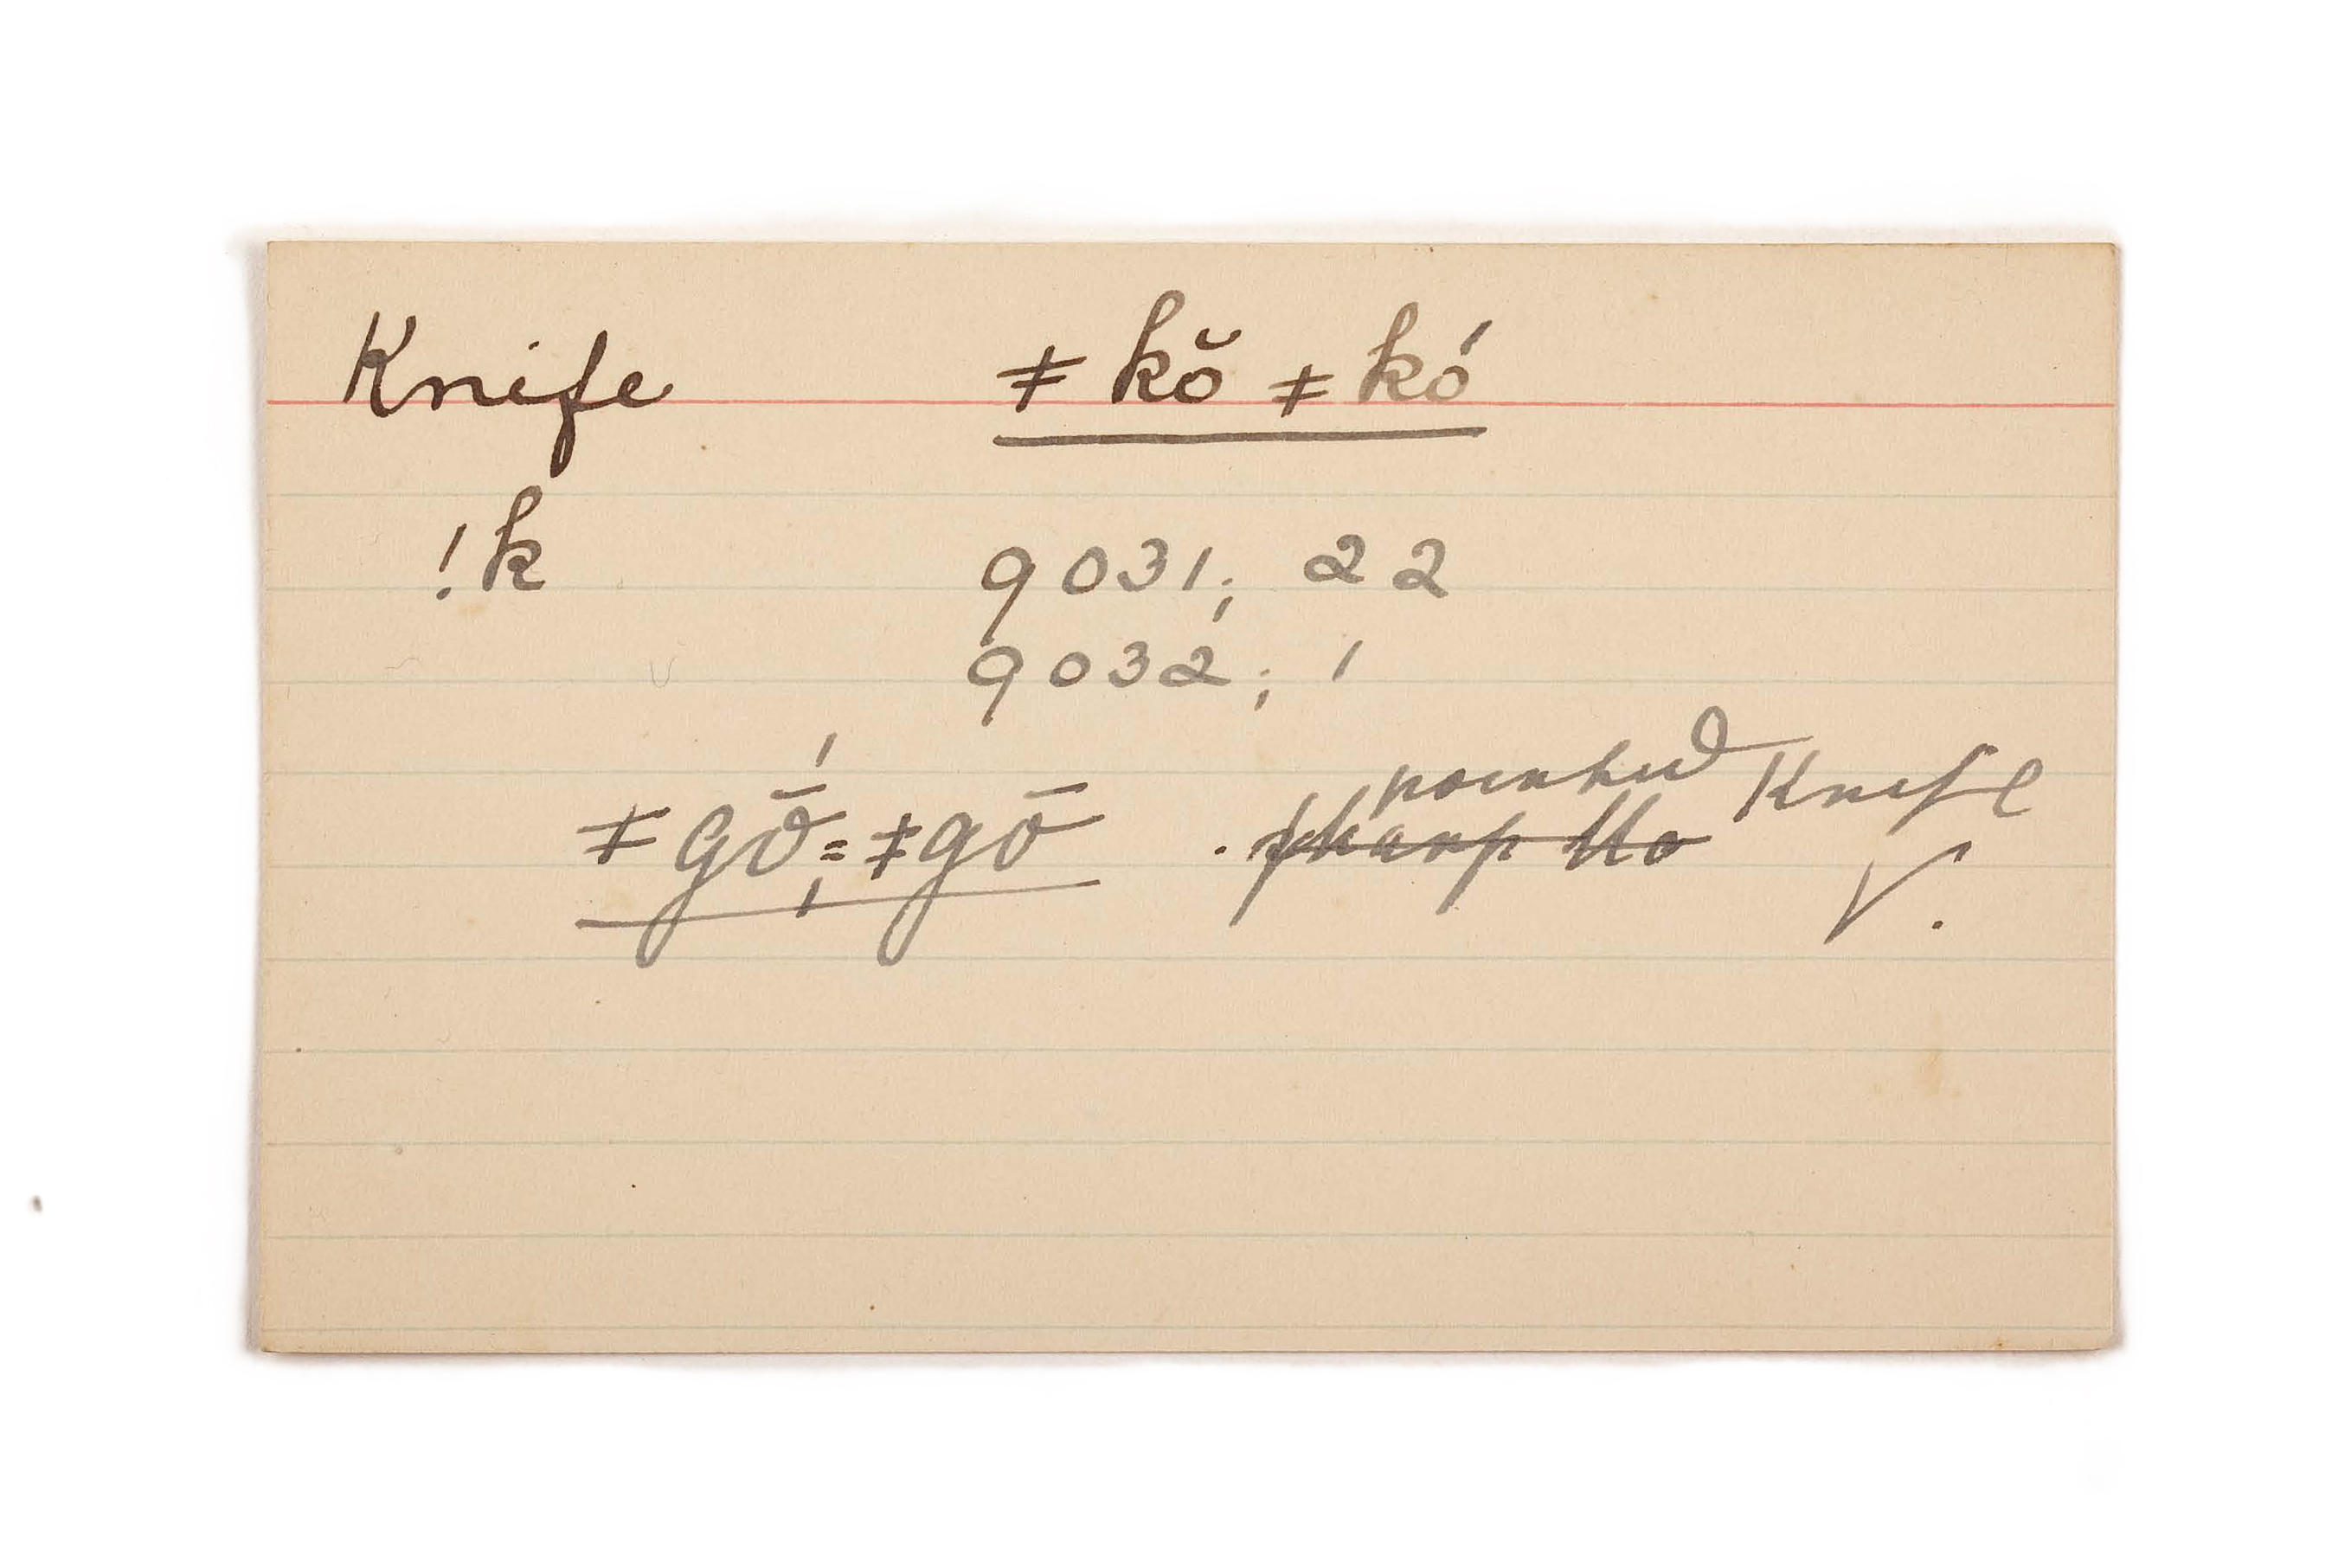 Knife ǂkŏ ǂkó
!k 9031; 22
9032; 1
pointed Knife
ǂgṓ=ǂgō . sharp